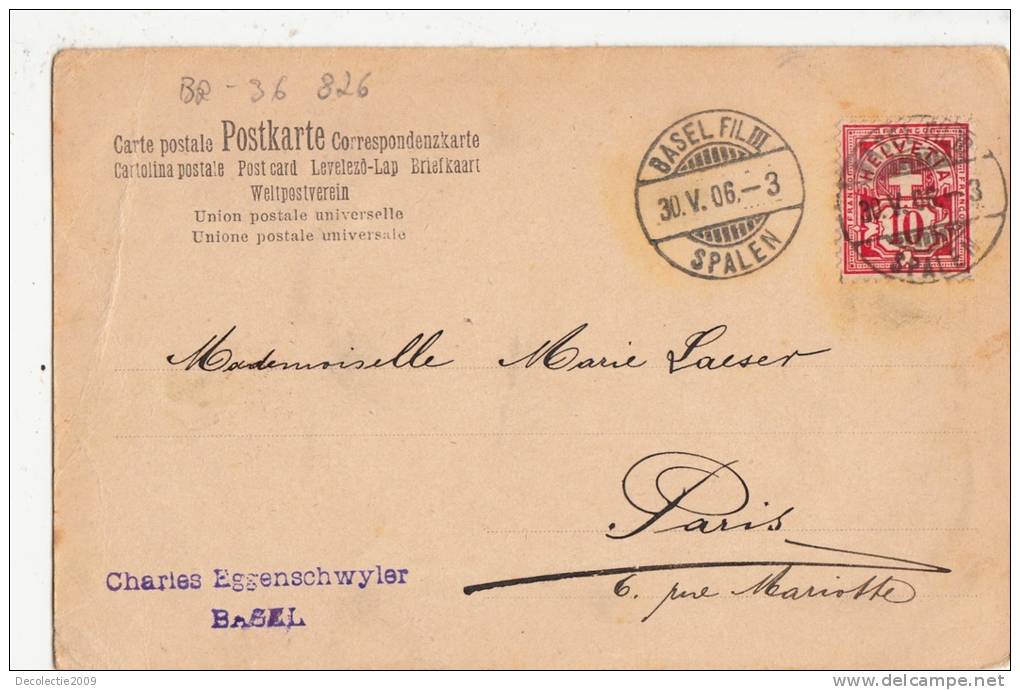 BR - 36 826
Carte postale Postkarte Correspondenzkarte
Cartolina postale Post card Levelező-Lap Briefkaart
Weltpostverein
Union postale universelle
Unione postale universale
BASEL FIL. III
30.V.06.-3
SPALEN
HELVETIA
FRANCO
10
30.V.06.-3
SPALEN
Mademoiselle Marie Laeser
Paris
6, rue Mariotte
Charles Eggenschwyler
BASEL
Decolectie2009
delcampe.net